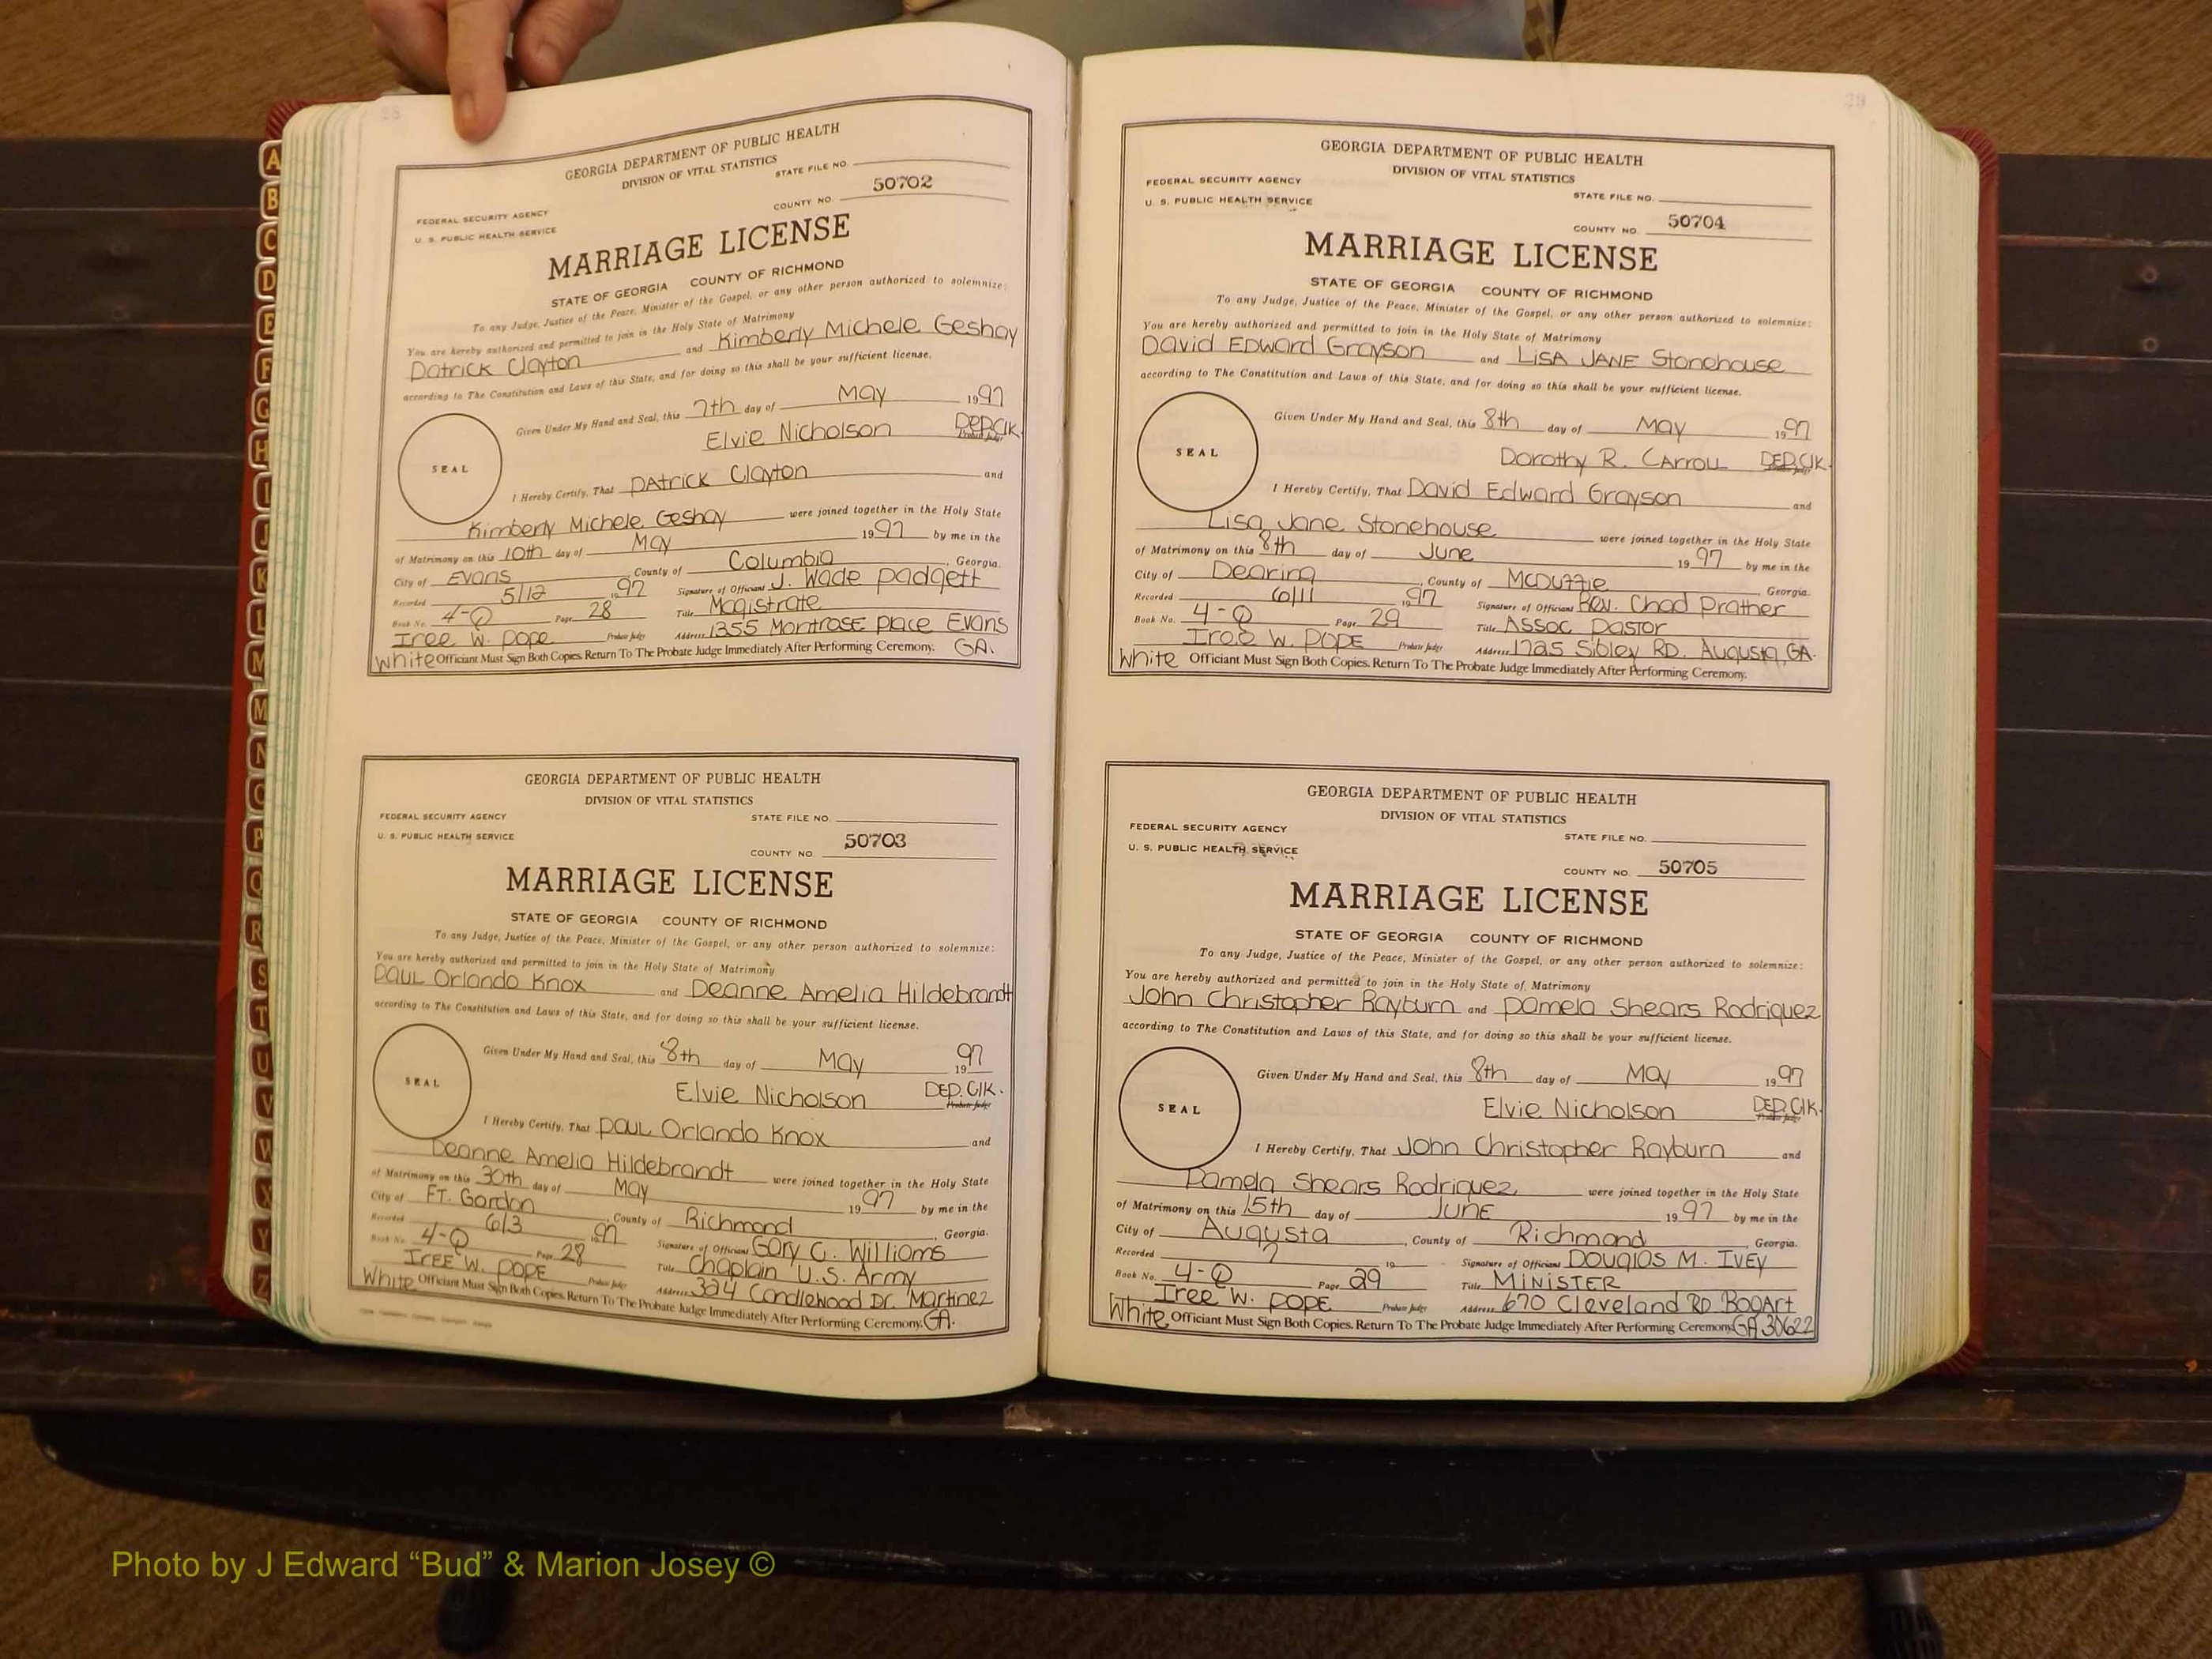 28
GEORGIA DEPARTMENT OF PUBLIC HEALTH
DIVISION OF VITAL STATISTICS
STATE FILE NO.
FEDERAL SECURITY AGENCY
U. S. PUBLIC HEALTH SERVICE
COUNTY NO. 50702
MARRIAGE LICENSE
STATE OF GEORGIA COUNTY OF RICHMOND
To any Judge, Justice of the Peace, Minister of the Gospel, or any other person authorized to solemnize:
You are hereby authorized and permitted to join in the Holy State of Matrimony
Patrick Clayton and Kimberly Michele Geshay
according to The Constitution and Laws of this State, and for doing so this shall be your sufficient license.
Given Under My Hand and Seal, this 7th day of May 1997
Elvie Nicholson DEP. Clk. Probate Judge
SEAL
I Hereby Certify, That Patrick Clayton and
Kimberly Michele Geshay were joined together in the Holy State
of Matrimony on this 10th day of May 1997 by me in the
City of Evans County of Columbia, Georgia.
Recorded 5/12 1997 Signature of Officiant J. Wade Padgett
Book No. 4-Q Page 28 Title Magistrate
Iree W. Pope Probate Judge Address 1355 Montrose Place Evans
White Officiant Must Sign Both Copies. Return To The Probate Judge Immediately After Performing Ceremony. GA.
GEORGIA DEPARTMENT OF PUBLIC HEALTH
DIVISION OF VITAL STATISTICS
FEDERAL SECURITY AGENCY STATE FILE NO.
U. S. PUBLIC HEALTH SERVICE
COUNTY NO. 50703
MARRIAGE LICENSE
STATE OF GEORGIA COUNTY OF RICHMOND
To any Judge, Justice of the Peace, Minister of the Gospel, or any other person authorized to solemnize:
You are hereby authorized and permitted to join in the Holy State of Matrimony
Paul Orlando Knox and Deanne Amelia Hildebrandt
according to The Constitution and Laws of this State, and for doing so this shall be your sufficient license.
Given Under My Hand and Seal, this 8th day of May 1997
Elvie Nicholson DEP. Clk. Probate Judge
SEAL
I Hereby Certify, That Paul Orlando Knox and
Deanne Amelia Hildebrandt were joined together in the Holy State
of Matrimony on this 30th day of May 1997 by me in the
City of Ft. Gordon, County of Richmond, Georgia.
Recorded 6/3 1997 Signature of Officiant Gary C. Williams
Book No. 4-Q Page 28 Title Chaplain U.S. Army
Iree W. Pope Probate Judge Address 324 Candlewood Dr. Martinez
White Officiant Must Sign Both Copies. Return To The Probate Judge Immediately After Performing Ceremony. GA.
29
GEORGIA DEPARTMENT OF PUBLIC HEALTH
DIVISION OF VITAL STATISTICS
FEDERAL SECURITY AGENCY STATE FILE NO.
U. S. PUBLIC HEALTH SERVICE
COUNTY NO. 50704
MARRIAGE LICENSE
STATE OF GEORGIA COUNTY OF RICHMOND
To any Judge, Justice of the Peace, Minister of the Gospel, or any other person authorized to solemnize:
You are hereby authorized and permitted to join in the Holy State of Matrimony
David Edward Grayson and Lisa Jane Stonehouse
according to The Constitution and Laws of this State, and for doing so this shall be your sufficient license.
Given Under My Hand and Seal, this 8th day of May 1997
Dorothy R. Carroll DEP. Clk. Probate Judge
SEAL
I Hereby Certify, That David Edward Grayson and
Lisa Jane Stonehouse were joined together in the Holy State
of Matrimony on this 8th day of June 1997 by me in the
City of Dearing, County of McDuffie Georgia.
Recorded 6/11 1997 Signature of Officiant Rev. Chad Prather
Book No. 4-Q Page 29 Title Assoc Pastor
Iree W. Pope Probate Judge Address 1725 Sibley RD. Augusta, GA.
White Officiant Must Sign Both Copies. Return To The Probate Judge Immediately After Performing Ceremony.
GEORGIA DEPARTMENT OF PUBLIC HEALTH
DIVISION OF VITAL STATISTICS
FEDERAL SECURITY AGENCY STATE FILE NO.
U. S. PUBLIC HEALTH SERVICE
COUNTY NO. 50705
MARRIAGE LICENSE
STATE OF GEORGIA COUNTY OF RICHMOND
To any Judge, Justice of the Peace, Minister of the Gospel, or any other person authorized to solemnize:
You are hereby authorized and permitted to join in the Holy State of Matrimony
John Christopher Rayburn and Pamela Shears Rodriquez
according to The Constitution and Laws of this State, and for doing so this shall be your sufficient license.
Given Under My Hand and Seal, this 8th day of May 1997
Elvie Nicholson DEP. Clk. Probate Judge
SEAL
I Hereby Certify, That John Christopher Rayburn and
Pamela Shears Rodriquez were joined together in the Holy State
of Matrimony on this 15th day of June 1997 by me in the
City of Augusta, County of Richmond, Georgia.
Recorded ? 19 Signature of Officiant Douglas M. Ivey
Book No. 4-Q Page 29 Title Minister
Iree W. Pope Probate Judge Address 670 Cleveland RD Bogart
White Officiant Must Sign Both Copies. Return To The Probate Judge Immediately After Performing Ceremony. GA 30622
A
B
C
D
E
F
G
H
I
J
K
L
M
M
N
O
P
Q
R
S
T
U
V
W
X
Y
Z
Photo by J Edward “Bud” & Marion Josey ©